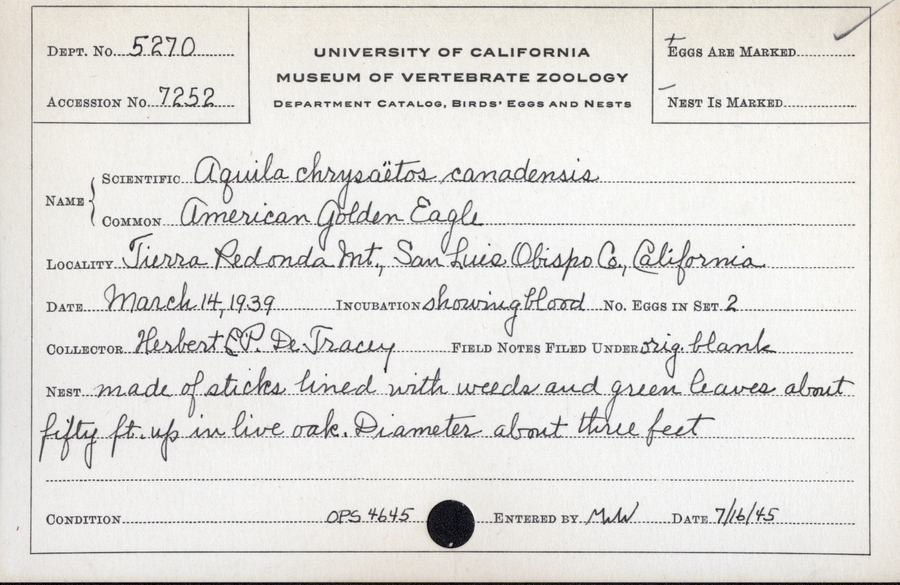 DEPT. No. 5270
UNIVERSITY OF CALIFORNIA
EGGS ARE MARKED
MUSEUM OF VERTEBRATE ZOOLOGY
ACCESSION No. 7252
DEPARTMENT CATALOG, BIRDS' EGGS AND NESTS
NEST IS MARKED
NAME
SCIENTIFIC Aquila chrysaëtos canadensis
COMMON American Golden Eagle
LOCALITY Tierra Redonda Mt., San Luis Obispo Co., California
DATE March 14, 1939 INCUBATION showing blood No. EGGS IN SET 2
COLLECTOR Herbert P. De Tracey FIELD NOTES FILED UNDER orig. blank
NEST made of sticks lined with weeds and green leaves about
fifty ft. up in live oak. Diameter about three feet
CONDITION OPS 4645 ENTERED BY DATE 7/16/45